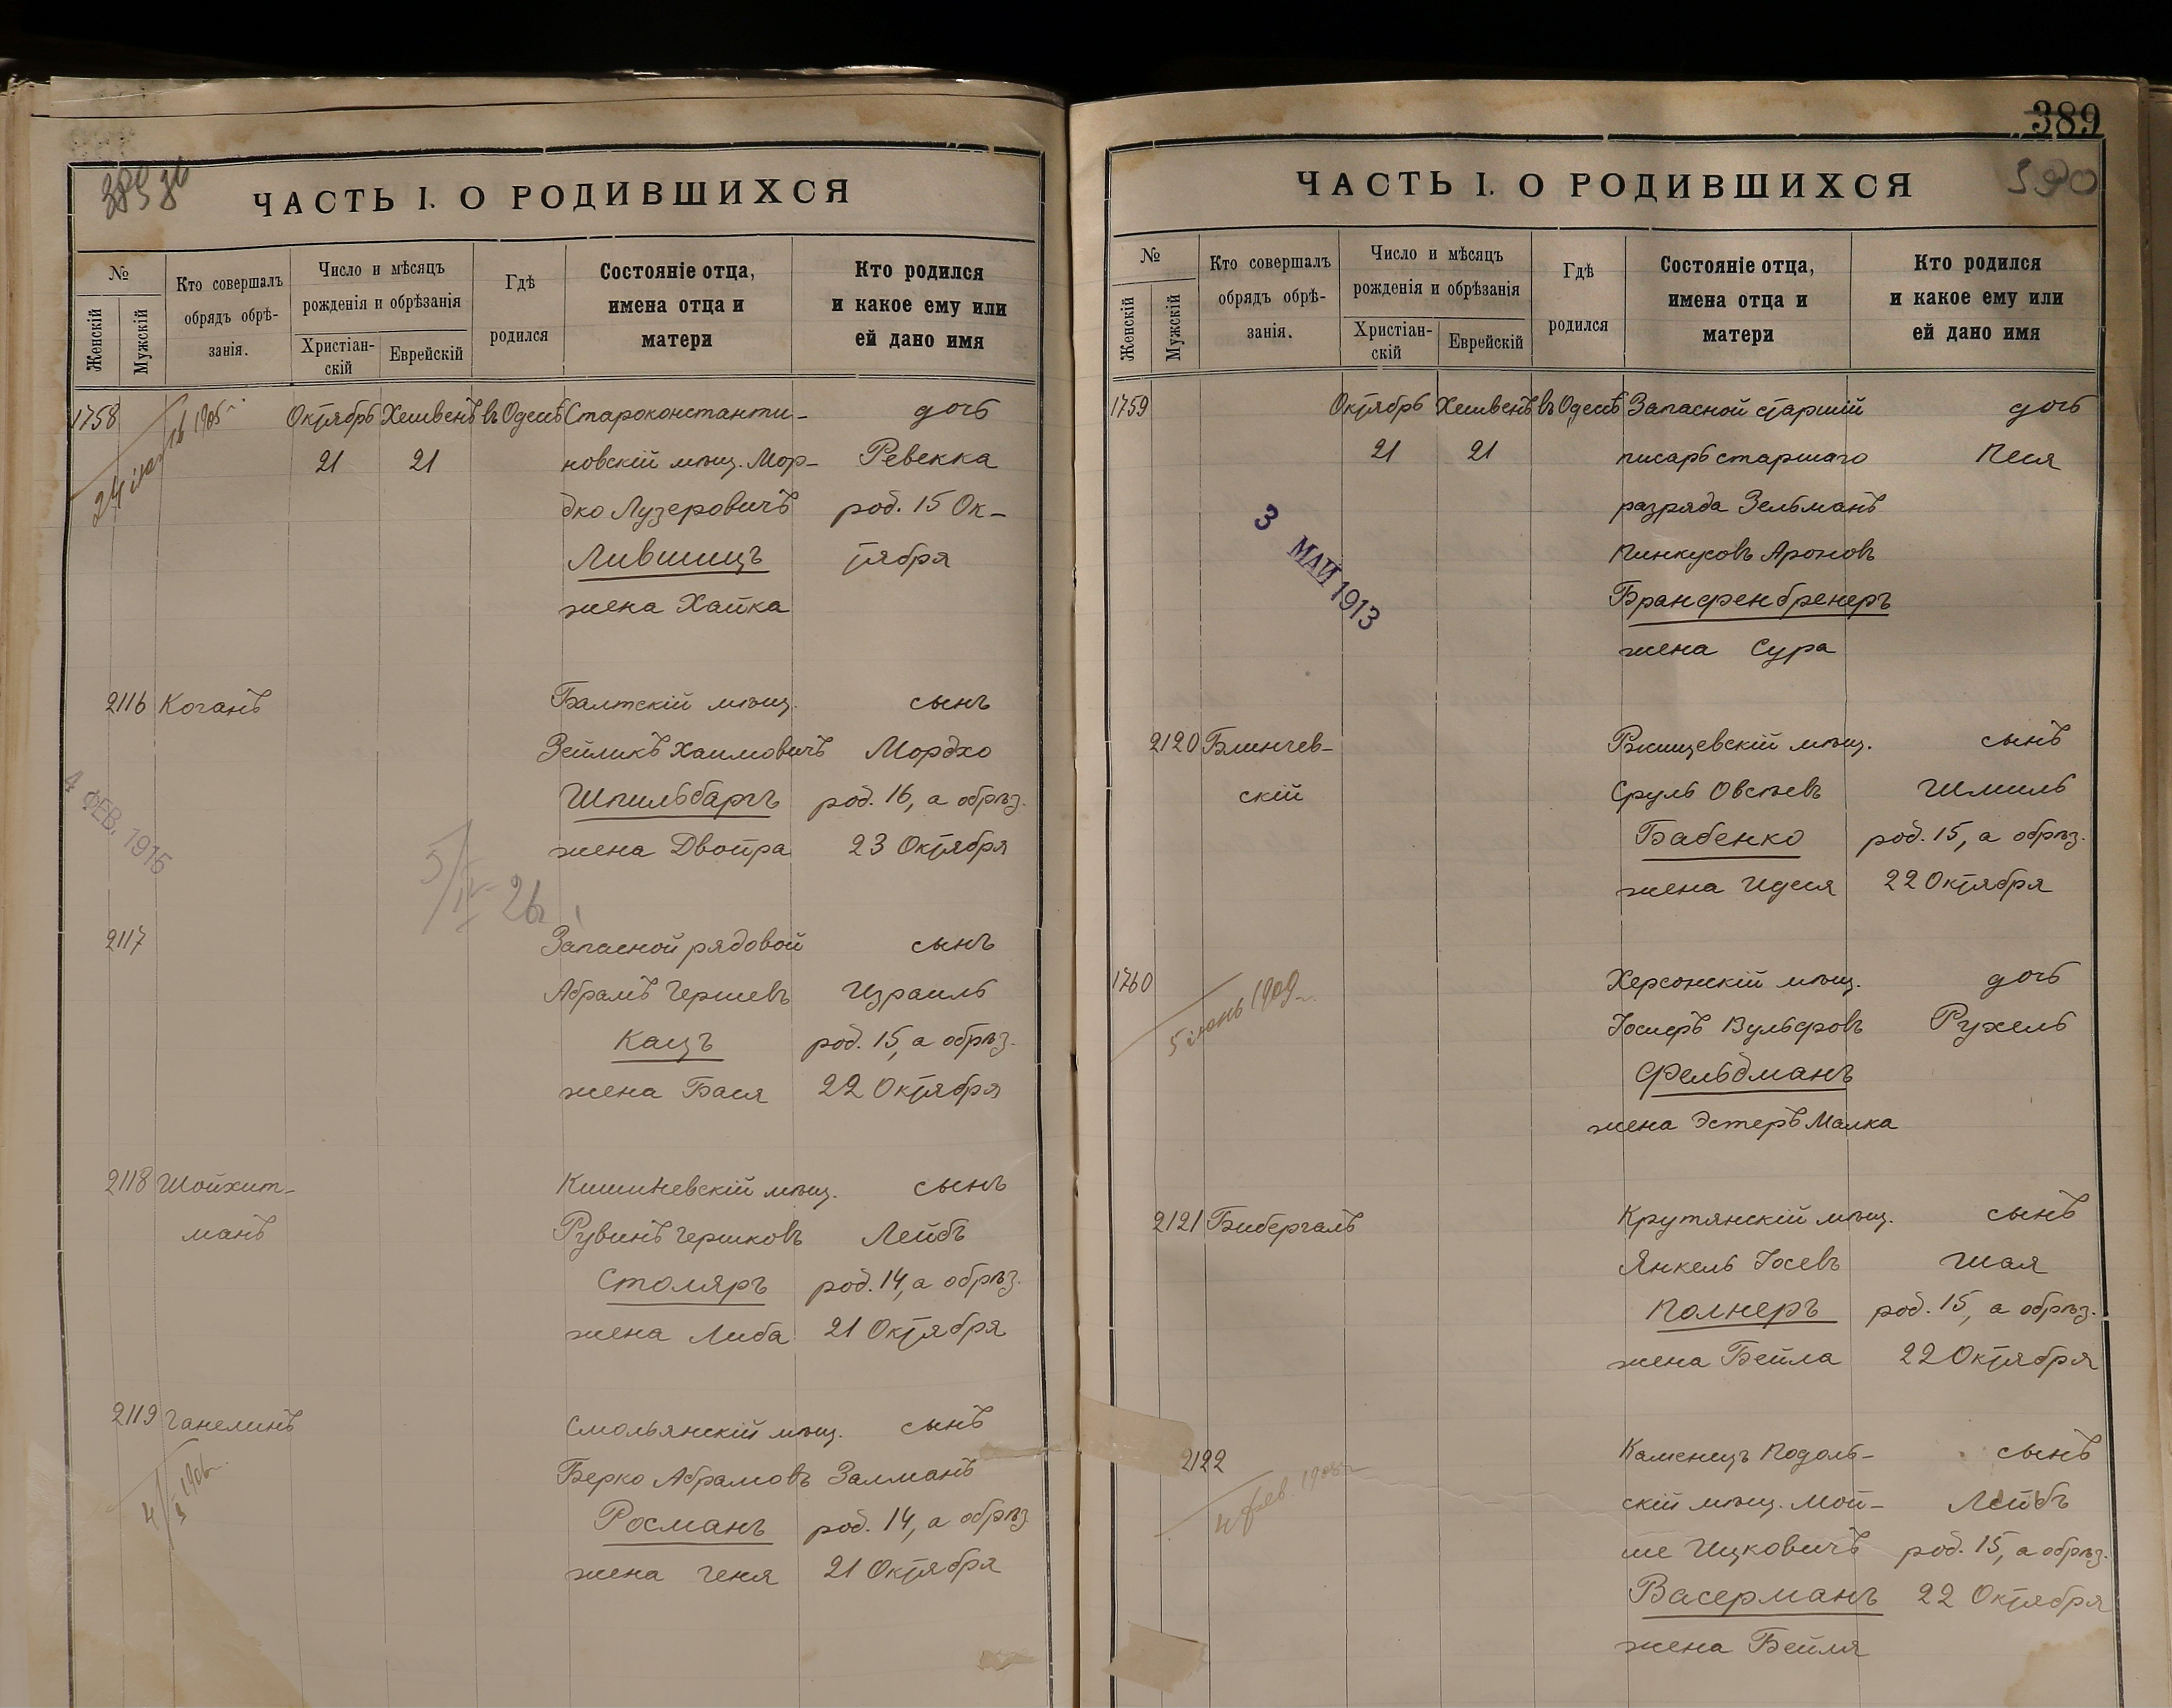 ЧАСТЬ I. О РОДИВШИХСЯ
№
Женскій
Мужскій
Кто совершалъ
обрядъ обрѣ-
занія.
Число и мѣсяцъ
рожденія и обрѣзанія
Христіан-
скій
Еврейскій
Гдѣ
родился
Состояніе отца,
имена отца и
матери
Кто родился
и какое ему или
ей дано имя
1758 Октябрь Хешвенъ въ Одессѣ Староконстанти- дочь
21 21 новскій мѣщ. Мор- Ревекка
дко Лузеровичъ род. 15 Ок-
Лившицъ тября
жена Хайка
2116 Коганъ Балтскій мѣщ. сынъ
Зейликъ Хаимовичъ Мордхо
Шпильбаргъ род. 16, а обрѣз.
жена Двойра 23 Октября
4 ФЕВ. 1915
2117 Запасной рядовой сынъ
Абрамъ Гершевъ Израиль
Кацъ род. 15, а обрѣз.
жена Бася 22 Октября
2118 Шойхит- Кишиневскій мѣщ. сынъ
манъ Рувинъ Гершковъ Лейбъ
Столяръ род. 14, а обрѣз.
жена Либа 21 Октября
2119 Ганелинъ Смольянскій мѣщ. сынъ
Берко Абрамовъ Залманъ
Росманъ род. 14, а обрѣз
жена Геня 21 Октября
389
390
ЧАСТЬ I. О РОДИВШИХСЯ
№
Женскій
Мужскій
Кто совершалъ
обрядъ обрѣ-
занія.
Число и мѣсяцъ
рожденія и обрѣзанія
Христіан-
скій
Еврейскій
Гдѣ
родился
Состояніе отца,
имена отца и
матери
Кто родился
и какое ему или
ей дано имя
1759 Октябрь Хешвенъ въ Одессѣ Запасной старшій дочь
21 21 писарь старшаго Песя
разряда Зельманъ
Пинкусовъ Ароновъ
Бранфенбренеръ
жена Сура
3 МАЙ 1913
2120 Блинчев- Ржищевскій мѣщ. сынъ
скій Сруль Овсѣевъ Шмиль
Бабенко род. 15, а обрѣз.
жена Идеся 22 Октября
1760 Херсонскій мѣщ. дочь
5 іюнь 1909 Іосифъ Вульфовъ Рухель
Фельдманъ
жена Эстеръ Малка
2121 Бибергаль Крутянскій мѣщ. сынъ
Янкель Іосевъ Шая
Полнеръ род. 15, а обрѣз.
жена Бейла 22 Октября
2122 Каменецъ Подоль- сынъ
скій мѣщ. Мой- Лейбъ
ше Ицковичъ род. 15, а обрѣз.
Васерманъ 22 Октября
жена Бейля